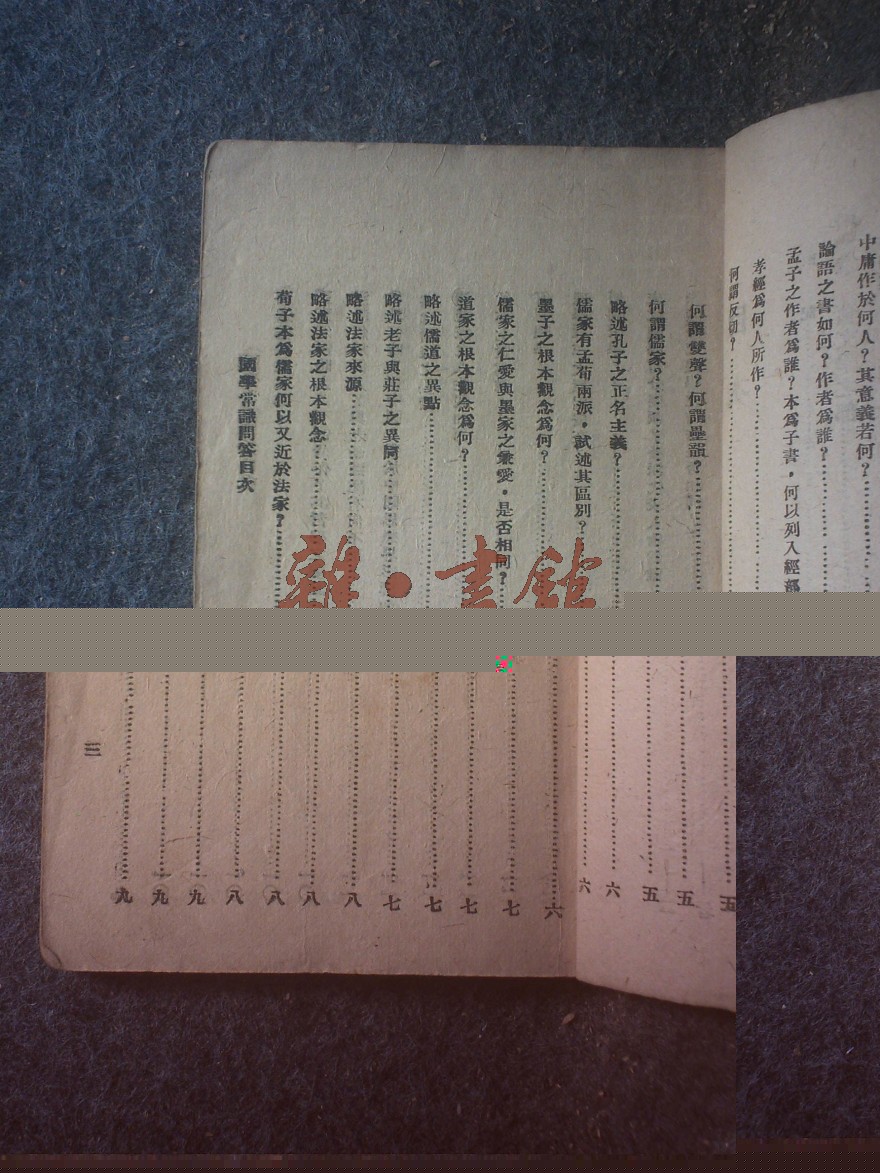 中庸作於何人？其意義若何？
論語之書如何？作者爲誰？
孟子之作者爲誰？本爲子書，何以列入經部
孝經爲何人所作？
何謂反切？
何謂雙聲？何謂疊韻？
何謂儒家？
略述孔子之正名主義？
儒家有孟荀兩派，試述其區別？
墨子之根本觀念爲何？
儒家之仁愛與墨家之兼愛，是否相同？
道家之根本觀念爲何？
略述儒道之異點
略述老子與莊子之異同
略述法家來源
略述法家之根本觀念
荀子本爲儒家何以又近於法家？
國學常識問答目次
雜·書館
五
五
五
六
六
六
七
七
七
七
八
八
八
八
九
九
九
三